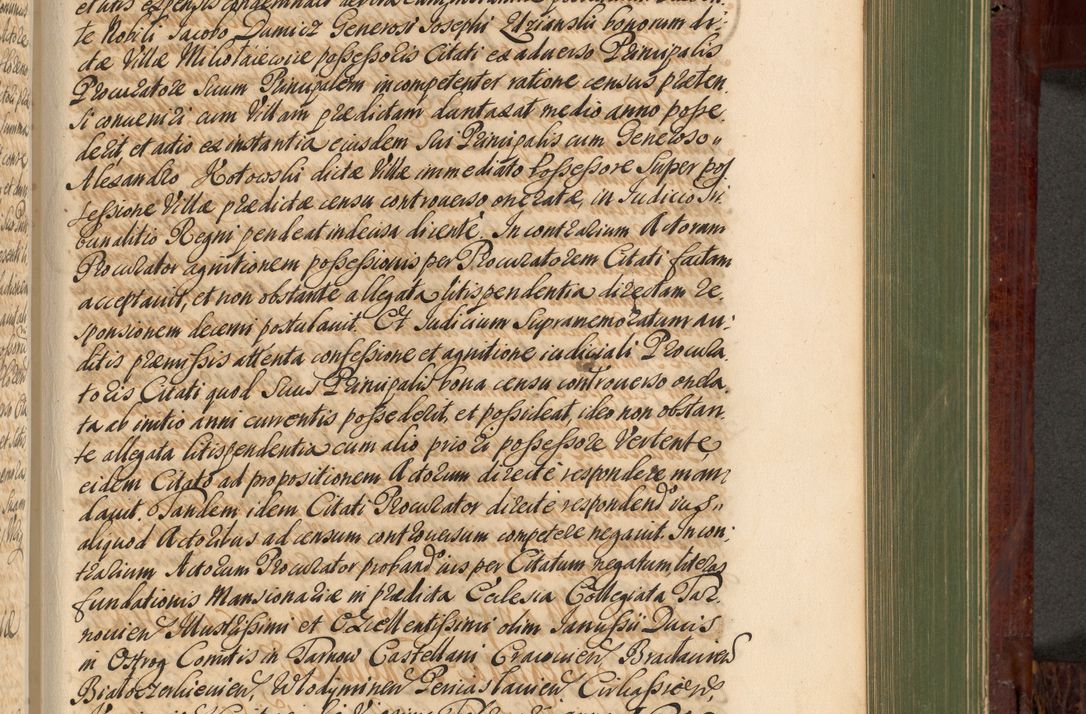 et litis expensis condemnari
te Nobili Jacobo Damicz Generosi Josephi bonorum di,
ctæ Villæ Mikołaiewice possessoris Citati ex aduerso Principalis
Procuratore Suum Principalem incompetenter ratione census præten,
si conueniri cum Villam prædictam duntaxat medio anno posse,
derit, et actio ex instantia eiusdem Sui Principalis cum Generoso "
Alexandro Kotowski dictæ Villæ immediato Possessore Super pos
sessione Villæ prædictæ censu controuerso oneratæ, in Judicio Tri
bunalitio Regni pendeat indecisa dicente. In contrarium Actorum
Procurator agnitionem possessionis per Procuratorem Citati factam
acceptauit, et non obstante allegata litispendentia directam re,
sponsionem decerni postulauit. Et Judicium Supramemoratum au,
ditis præmissis attenta confessione et agnitione iudiciali Procura,
toris Citati quod Suus Principalis bona censu controuerso onera,
ta ab initio anni currentis possederit, et possideat, ideo non obstan
te allegata litispendentia cum alio priori possessore Vertente
eidem Citato ad propositionem Actorum directe respondere man
dauit. Tandem idem Citati Procurator directe respondend ius "
aliquod Actoribus ad censum controuersum competere negauit. In con,
trarium Actorum Procurator proband ius per Citatum negatum, literas
fundationis Mansionariæ in prædicta Ecclesia Collegiata Tar,
nouien Illustrissimi et Excellentissimi olim Janussii Ducis
in Ostrog Comitis in Tarnow Castellani Cracouien Braclauien
Białocerkieuien, Włodzimirien Periaslauien, Circassien,